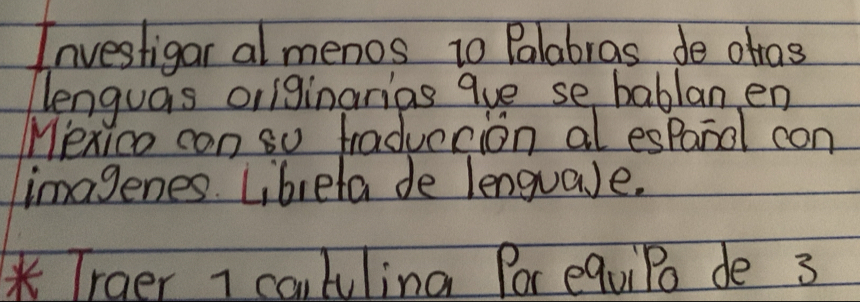 Investigar al menos 10 Palabras de otras
lenguas originarias que se hablan en
México con su traducción al español con
imagenes. Libreta de lenguaje.
* Traer 1 cartulina Por equipo de 3